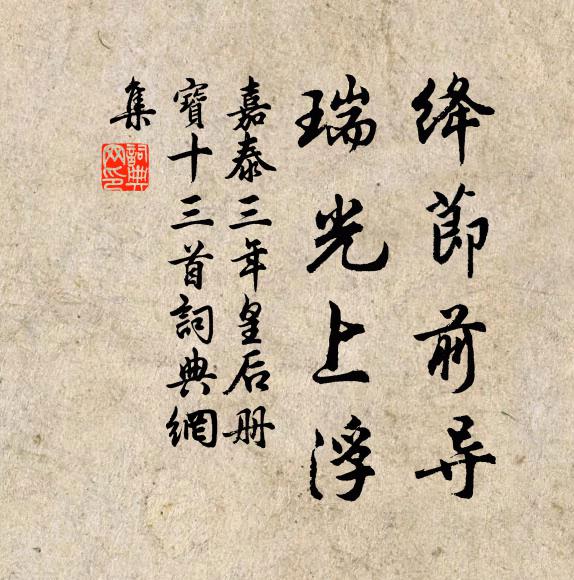 绛節前导
瑞光上浮
嘉泰三年皇后册
寶十三首詞典網
集
詞典网印